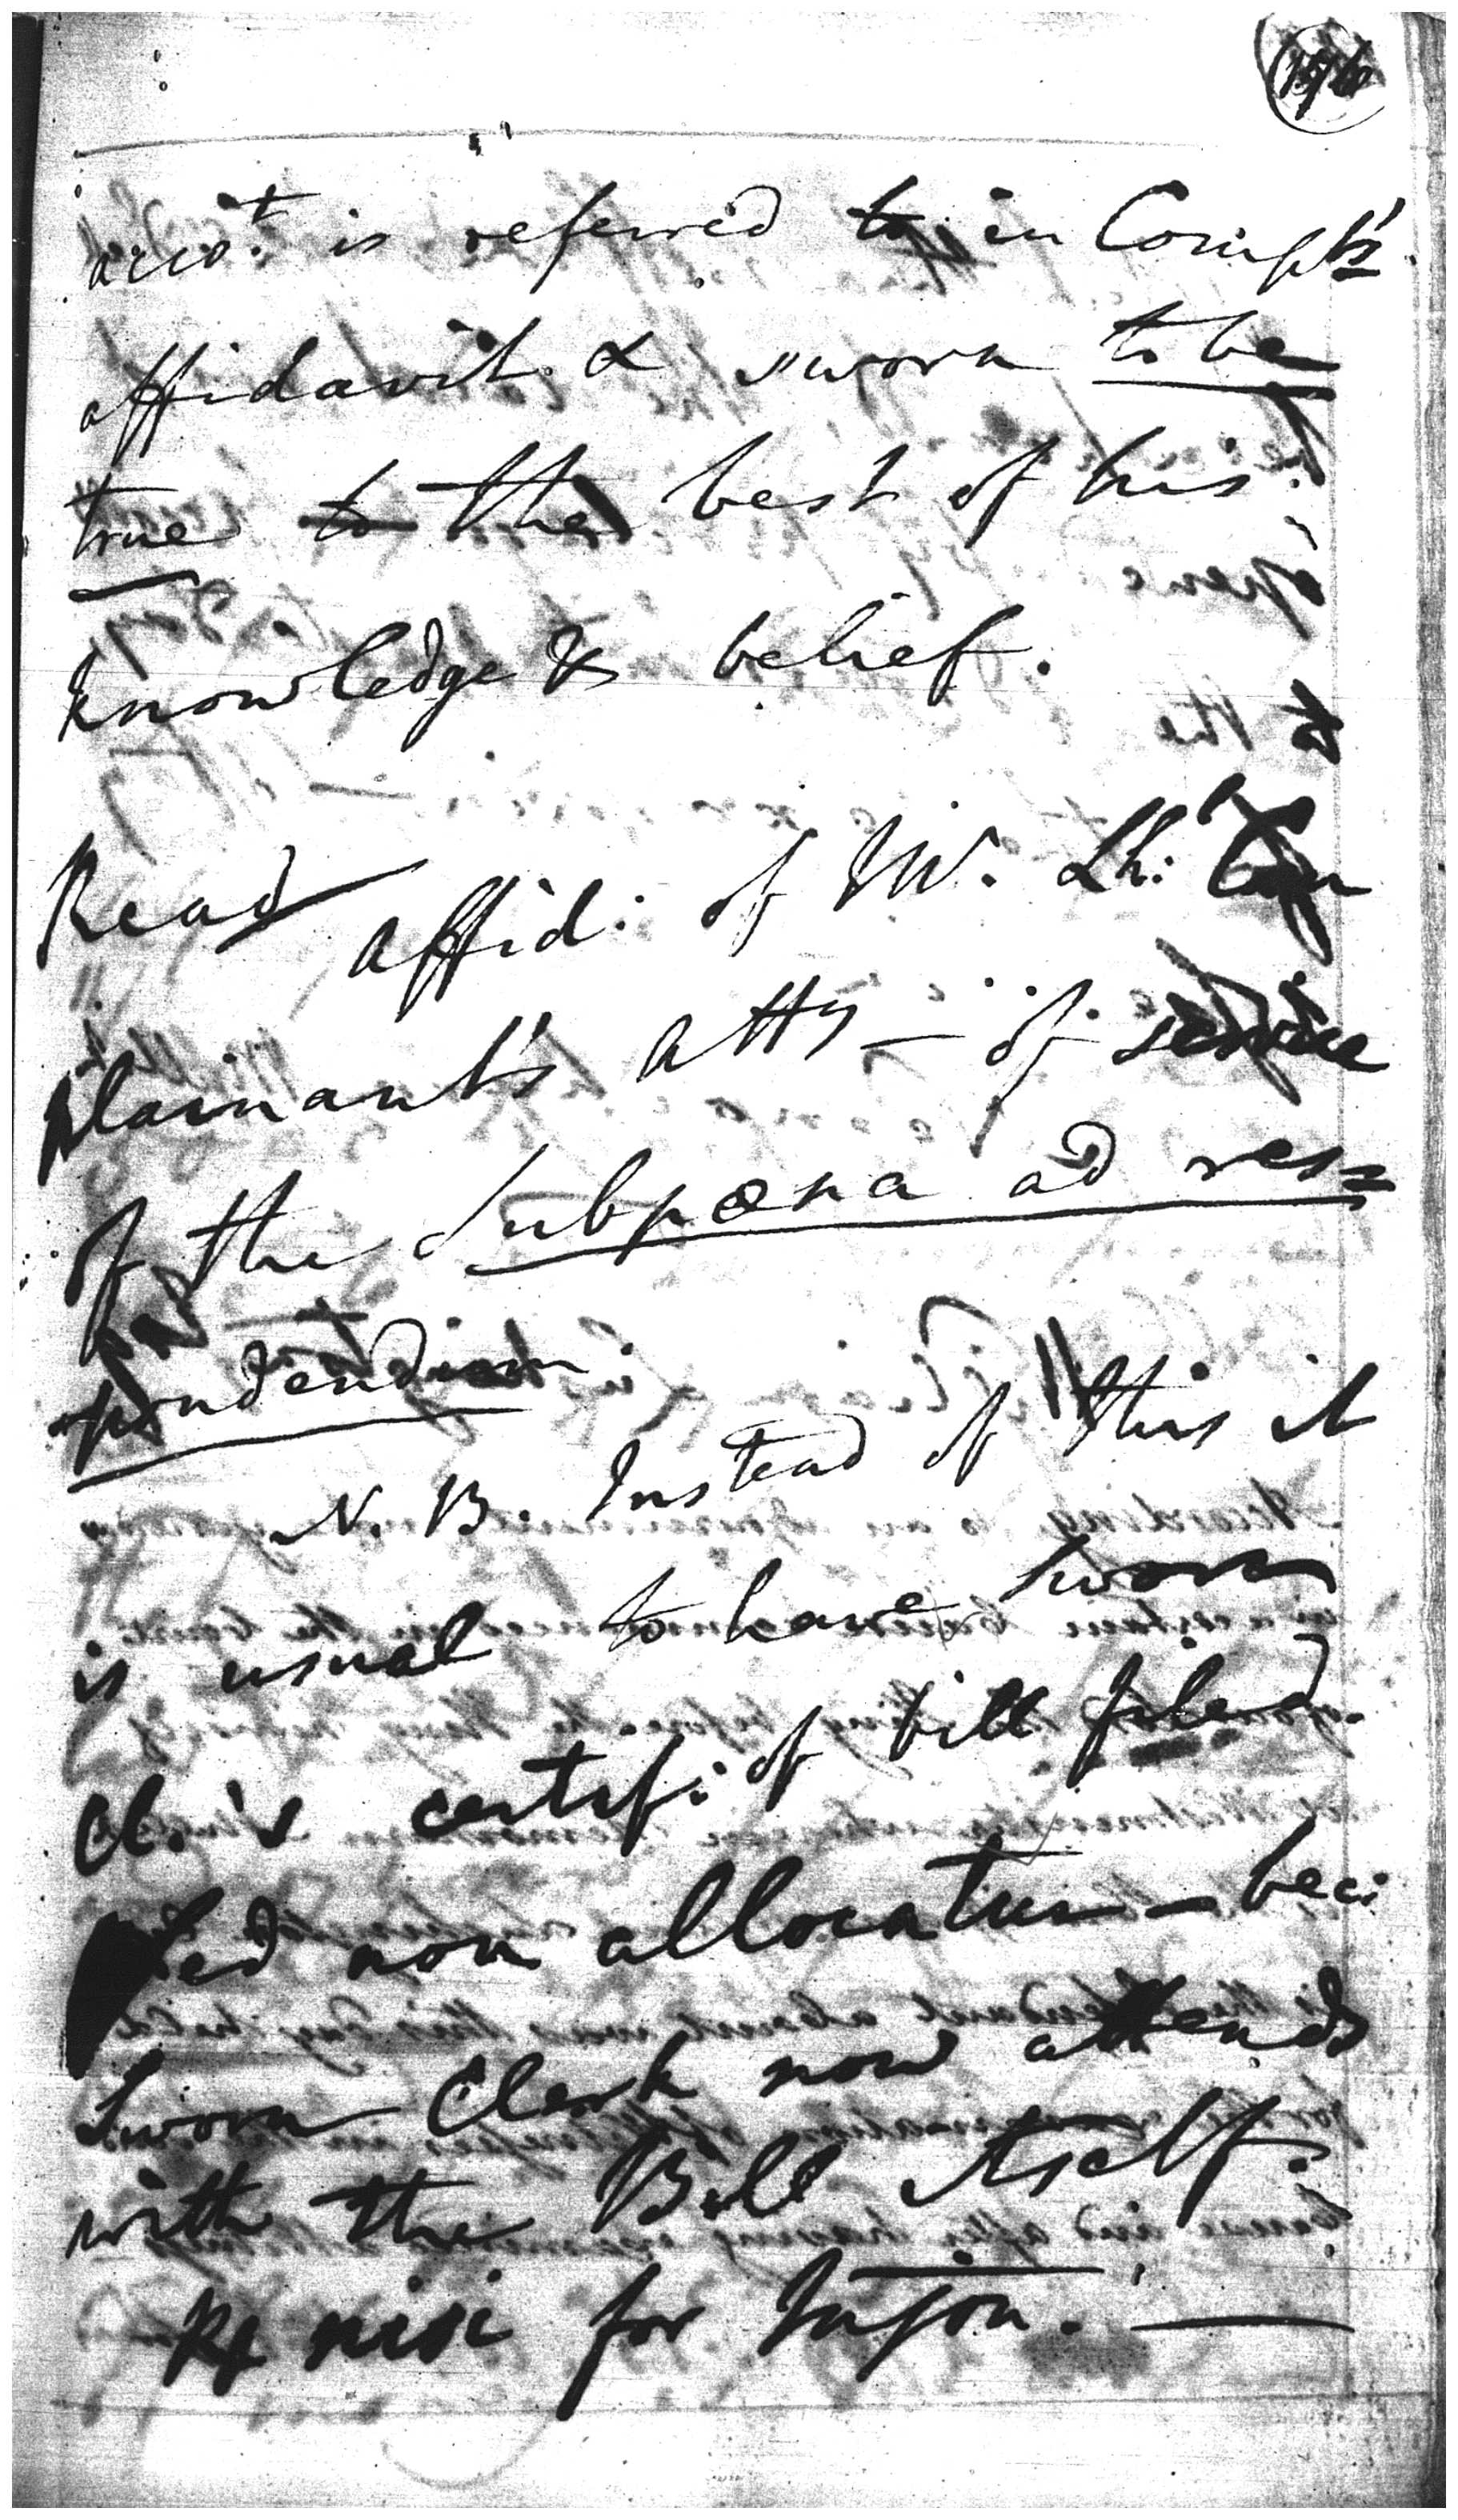 acco.t is referred to in Compl.ts
affidavit & sworn to be
true to the best of his
knowledge & belief.
Read affid: of Mr.
plainant's atty — of service
of the Subpœna ad res=
pondendum.
N. B. Instead of this it
is usual to have sworn
Cl.'s certif: of bill filed
sed non allocatur — beca:
Sworn Clerk now attends
with the Bill itself.
Rx nisi for Injon. —